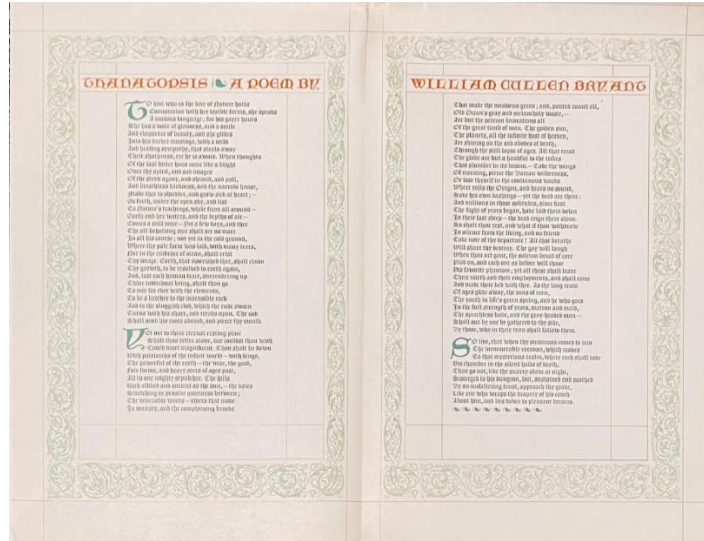 THANATOPSIS A POEM BY
To him who in the love of Nature holds
Communion with her visible forms, she speaks
A various language; for his gayer hours
She has a voice of gladness, and a smile
And eloquence of beauty, and she glides
Into his darker musings, with a mild
And healing sympathy, that steals away
Their sharpness, ere he is aware. When thoughts
Of the last bitter hour come like a blight
Over thy spirit, and sad images
Of the stern agony, and shroud, and pall,
And breathless darkness, and the narrow house,
Make thee to shudder, and grow sick at heart;—
Go forth, under the open sky, and list
To Nature's teachings, while from all around—
Earth and her waters, and the depths of air—
Comes a still voice—Yet a few days, and thee
The all-beholding sun shall see no more
In all his course; nor yet in the cold ground,
Where thy pale form was laid, with many tears,
Nor in the embrace of ocean, shall exist
Thy image. Earth, that nourished thee, shall claim
Thy growth, to be resolved to earth again,
And, lost each human trace, surrendering up
Thine individual being, shalt thou go
To mix for ever with the elements,
To be a brother to the insensible rock
And to the sluggish clod, which the rude swain
Turns with his share, and treads upon. The oak
Shall send his roots abroad, and pierce thy mould.
Yet not to thine eternal resting-place
Shalt thou retire alone, nor couldst thou wish
Couch more magnificent. Thou shalt lie down
With patriarchs of the infant world—with kings,
The powerful of the earth—the wise, the good,
Fair forms, and hoary seers of ages past,
All in one mighty sepulchre. The hills
Rock-ribbed and ancient as the sun,—the vales
Stretching in pensive quietness between;
The venerable woods—rivers that move
In majesty, and the complaining brooks
WILLIAM CULLEN BRYANT
That make the meadows green; and, poured round all,
Old Ocean's gray and melancholy waste,—
Are but the solemn decorations all
Of the great tomb of man. The golden sun,
The planets, all the infinite host of heaven,
Are shining on the sad abodes of death,
Through the still lapse of ages. All that tread
The globe are but a handful to the tribes
That slumber in its bosom.—Take the wings
Of morning, pierce the Barcan wilderness,
Or lose thyself in the continuous woods
Where rolls the Oregon, and hears no sound,
Save his own dashings—yet the dead are there:
And millions in those solitudes, since first
The flight of years began, have laid them down
In their last sleep—the dead reign there alone.
So shalt thou rest, and what if thou withdraw
In silence from the living, and no friend
Take note of thy departure? All that breathe
Will share thy destiny. The gay will laugh
When thou art gone, the solemn brood of care
Plod on, and each one as before will chase
His favorite phantom; yet all these shall leave
Their mirth and their employments, and shall come
And make their bed with thee. As the long train
Of ages glide away, the sons of men,
The youth in life's green spring, and he who goes
In the full strength of years, matron and maid,
The speechless babe, and the gray-headed man—
Shall one by one be gathered to thy side,
By those, who in their turn shall follow them.
So live, that when thy summons comes to join
The innumerable caravan, which moves
To that mysterious realm, where each shall take
His chamber in the silent halls of death,
Thou go not, like the quarry-slave at night,
Scourged to his dungeon, but, sustained and soothed
By an unfaltering trust, approach thy grave,
Like one who wraps the drapery of his couch
About him, and lies down to pleasant dreams.